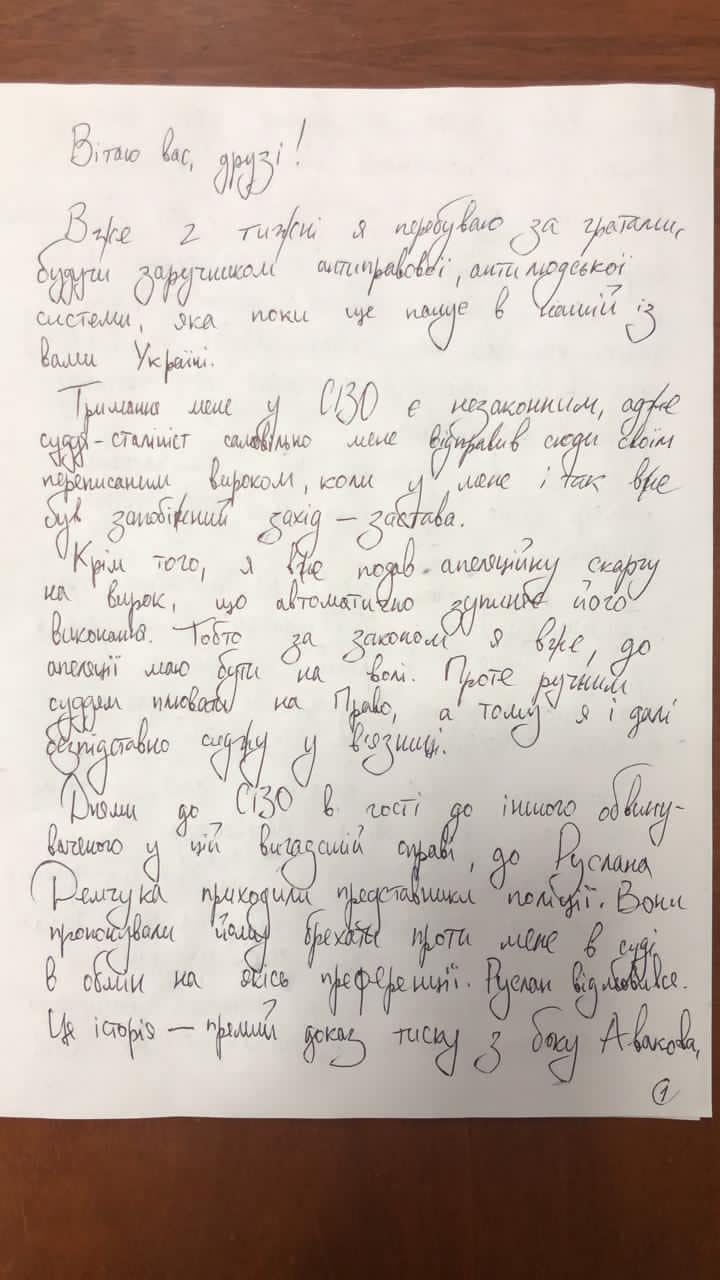 Вітаю вас, друзі!
Вже 2 тижні я перебуваю за гратами,
будучи заручником антиправової, антилюдської
системи, яка поки ще панує в нашій із
вами Україні.
Тримання мене у СІЗО є незаконним, адже
суддя-сталініст самовільно мене відправив сюди своїм
переписаним вироком, коли у мене і так вже
був запобіжний захід – застава.
Крім того, я вже подав апеляційну скаргу
на вирок, що автоматично зупиняє його
виконання. Тобто за законом я вже, до
апеляції маю бути на волі. Проте ручним
суддям плювати на Право, а тому я і далі
безпідставно сиджу у в'язниці.
Днями до СІЗО в гості до іншого обвину-
ваченого у цій вигаданій справі, до Руслана
Демчука приходили представники поліції. Вони
пропонували йому брехати проти мене в суді
в обмін на якісь преференції. Руслан відмовився.
Це історія – прямий доказ тиску з боку Авакова,
1